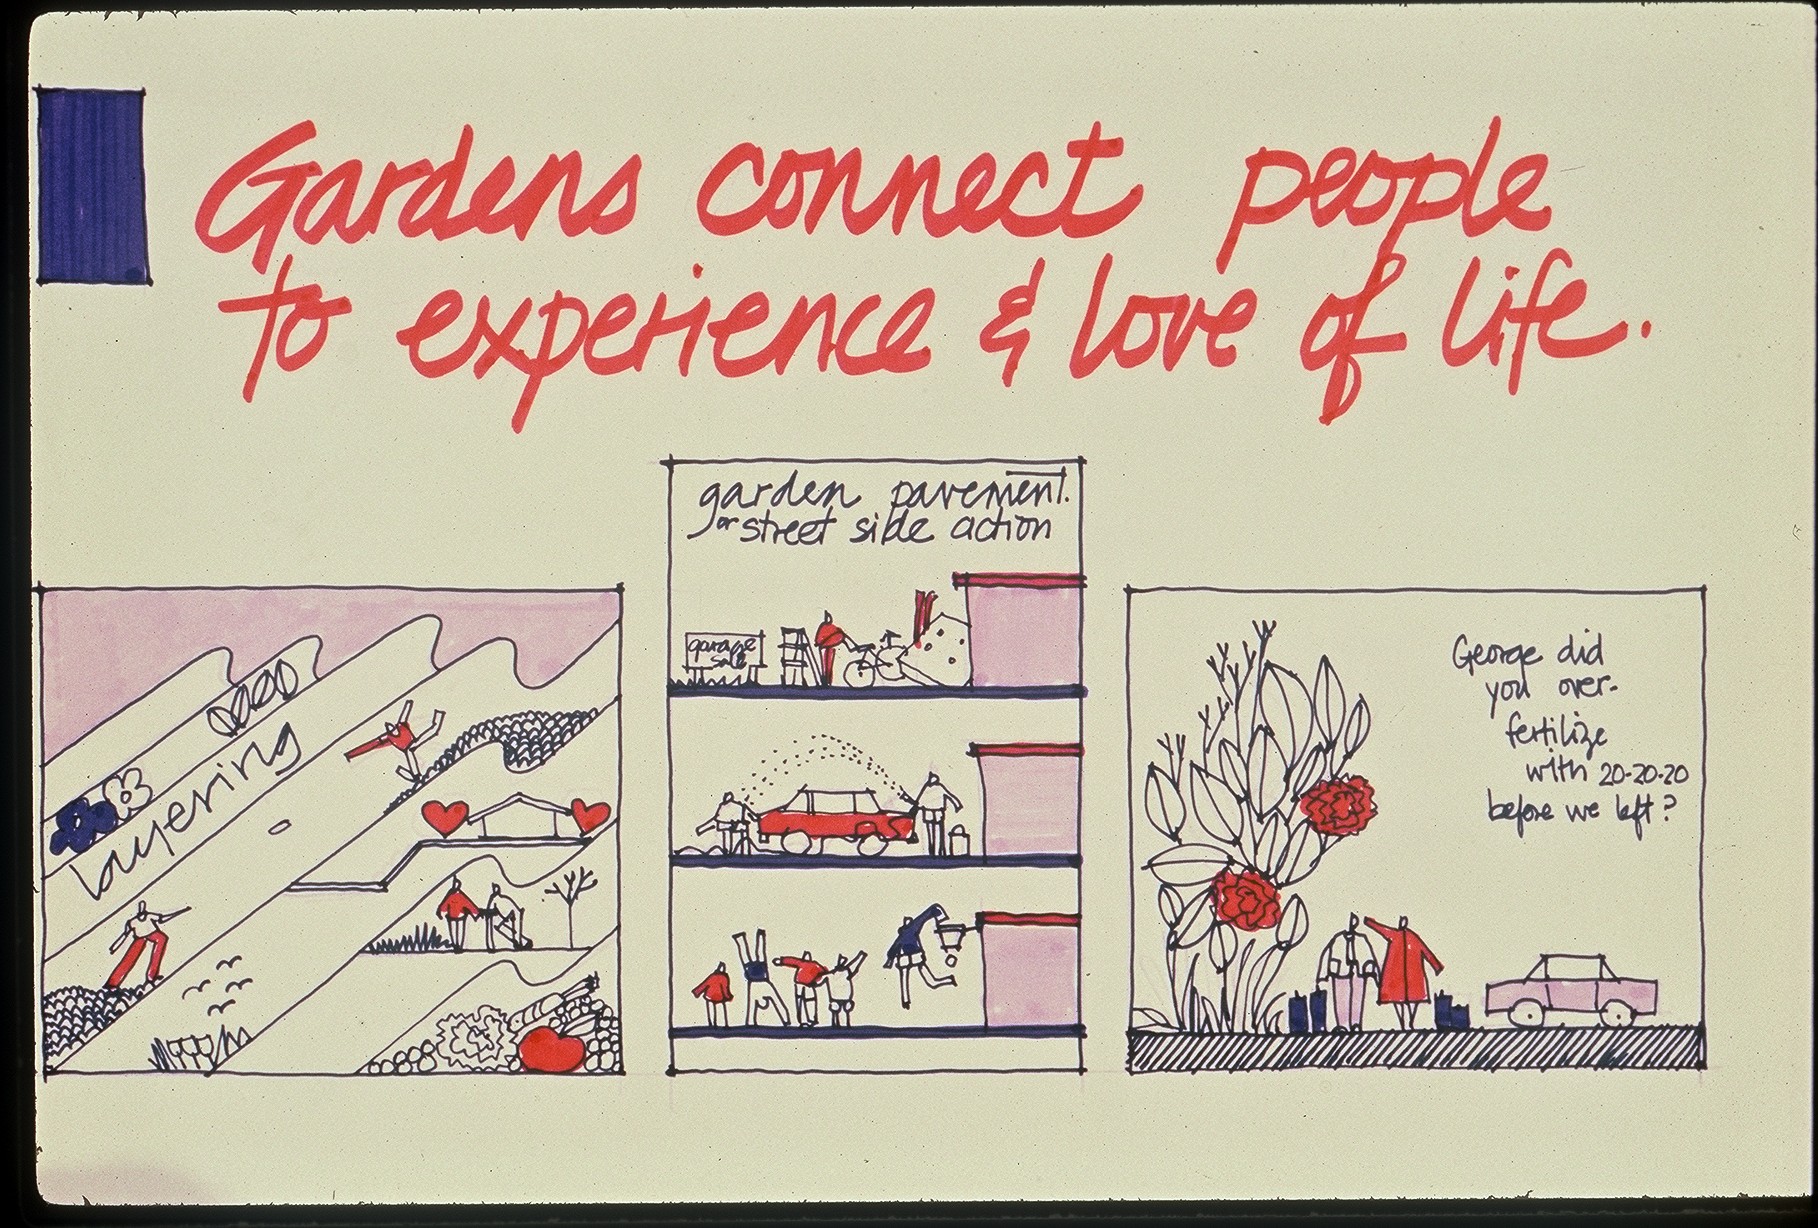 Gardens connect people
to experience & love of life.
garden pavement.
or street side action
garage
sale
layering
George did
you over-
fertilize
with 20-20-20
before we left?